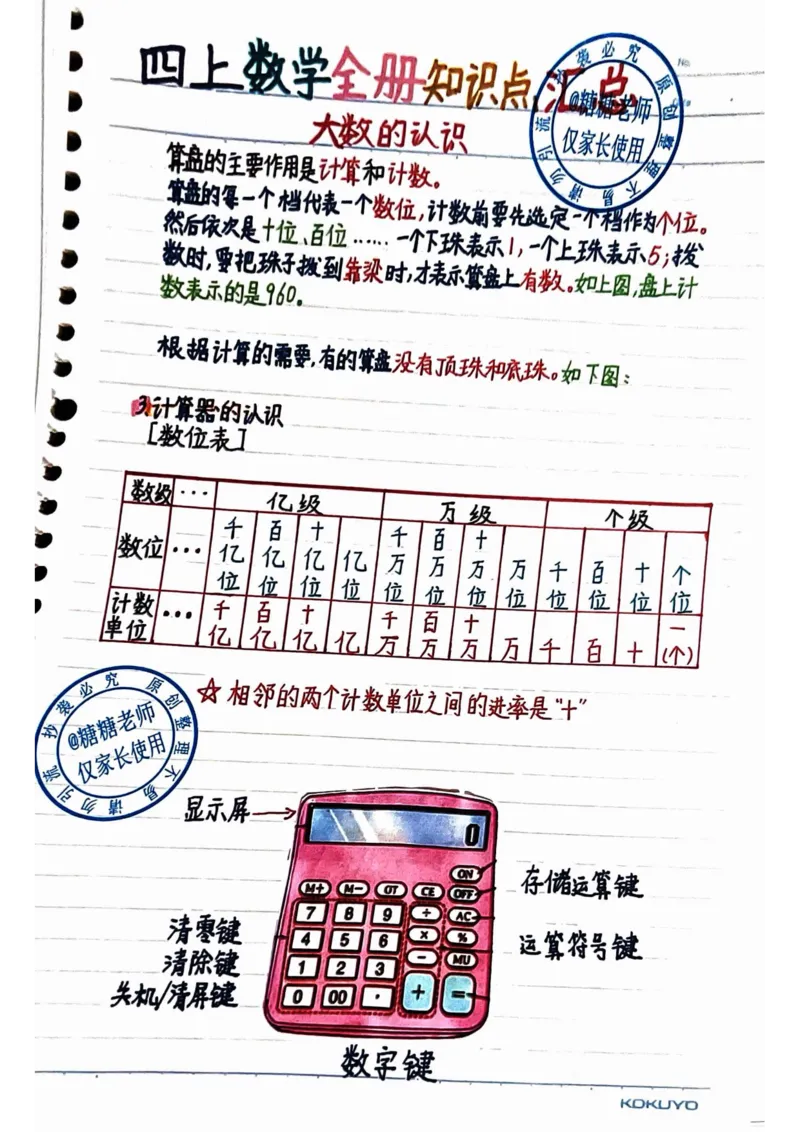 四上数学全册知识点汇总
大数的认识
算盘的主要作用是计算和计数。
算盘的每一个档代表一个数位,计数前要先选定一个档作为个位。
然后依次是十位、百位……一个下珠表示1,一个上珠表示5;拨
数时,要把珠子拨到靠梁时,才表示算盘上有数。如上图,盘上计
数表示的是960。
根据计算的需要,有的算盘没有顶珠和底珠。如下图:
3计算器的认识
[数位表]
数级 ... 亿级 万级 个级
数位 ... 千亿位 百亿位 十亿位 亿位 千万位 百万位 十万位 万位 千位 百位 十位 个位
计数单位 ... 千亿 百亿 十亿 亿 千万 百万 十万 万 千 百 十 一(个)
☆相邻的两个计数单位之间的进率是“十”
抄袭必究 原创整理不易 请勿引流
@糖糖老师
仅家长使用
抄袭必究 原创整理不易 请勿引流
@糖糖老师
仅家长使用
显示屏
0
ON
M+ M- OT CE OFF
7 8 9 ÷ AC
4 5 6 × %
1 2 3 - MU
0 00 · + =
存储运算键
运算符号键
清零键
清除键
关机/清屏键
数字键
KOKUYO